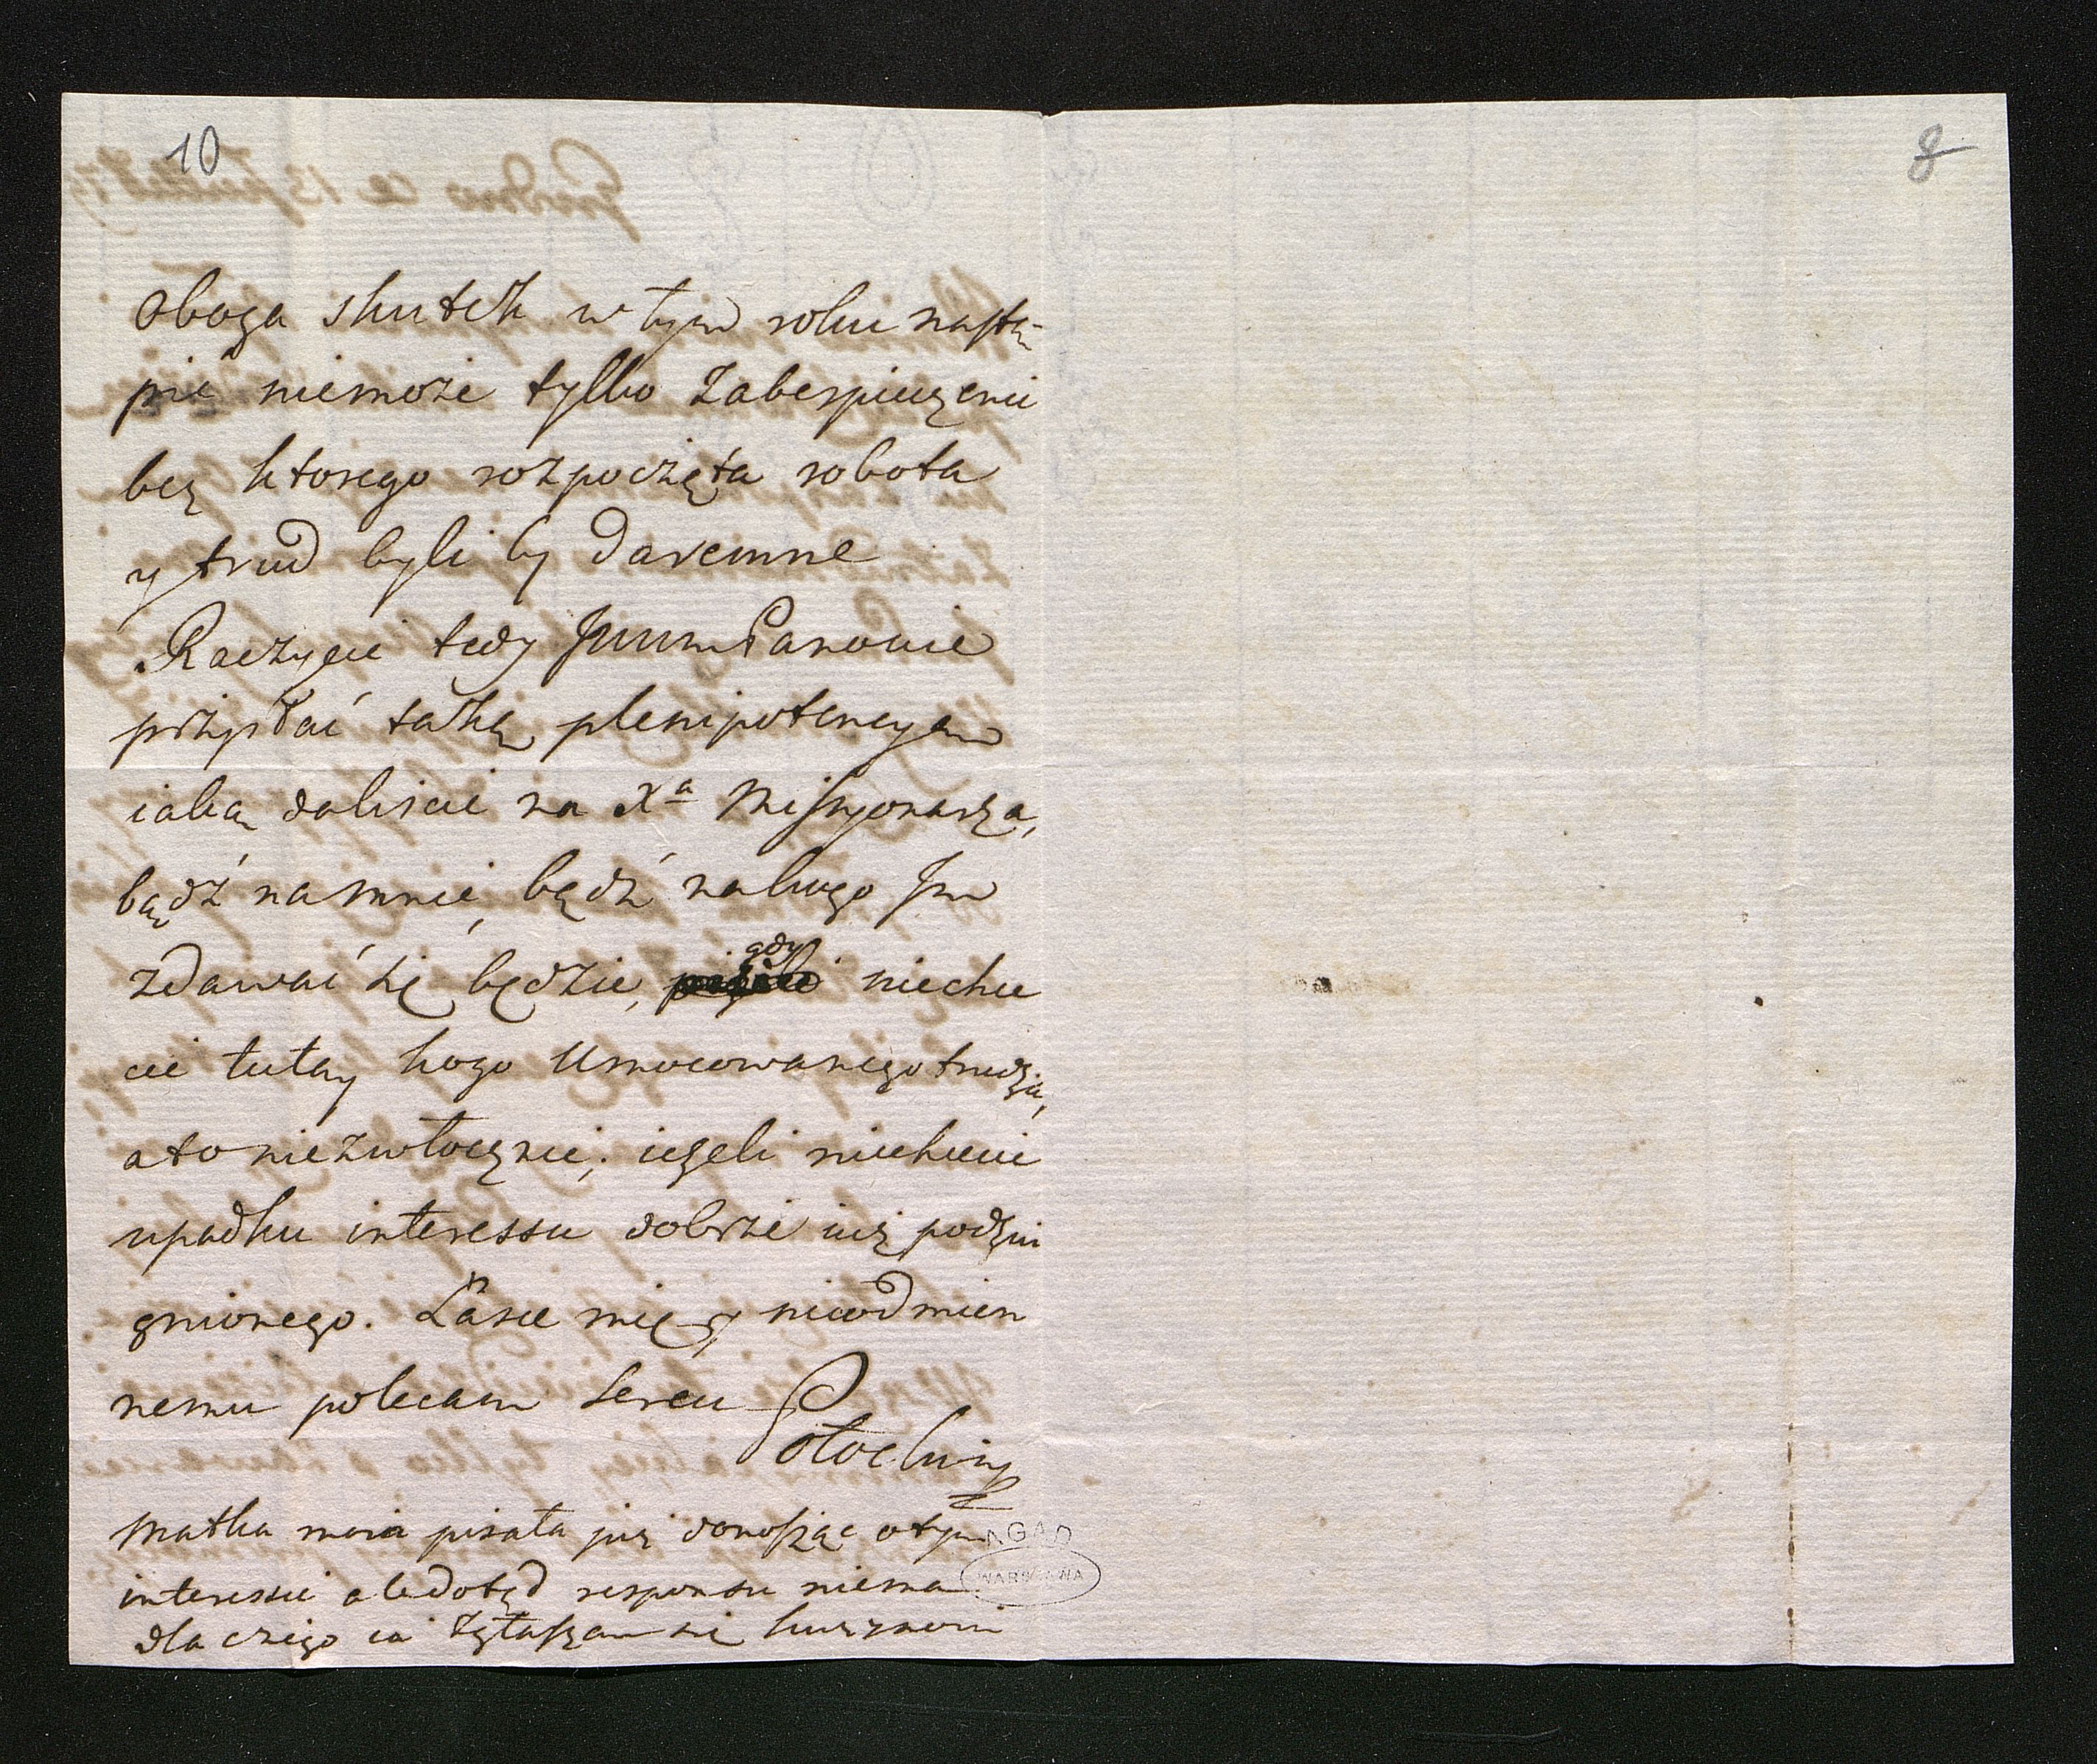 10
8
oboga skutek w tym roku nastę-
pić niemoże tylko zabespieczenie
bez ktorego rozpoczęta robota
y trud byli by daremne
Raczycie tedy JmmPanowie
przysłać taką plenipotencyam
iaką daliscie na Xa Missyonarza,
bądź namnie, bądź nakogo Jm
zdawać się będzie, gdy niechce
cie tutay kogo Umocowanego trudzić,
ato niezwłocznie; ieżeli niechcecie
upadku interessu dobrze iuż podzwi
gnionego. Łasce mię y nieodmien
nemu polecam sercu
Potockiy
Matka moia pisała już donosząc otym
interessie aledotąd responsu niema
dla czego ia zgłaszam się
AGAD
WARSZAWA